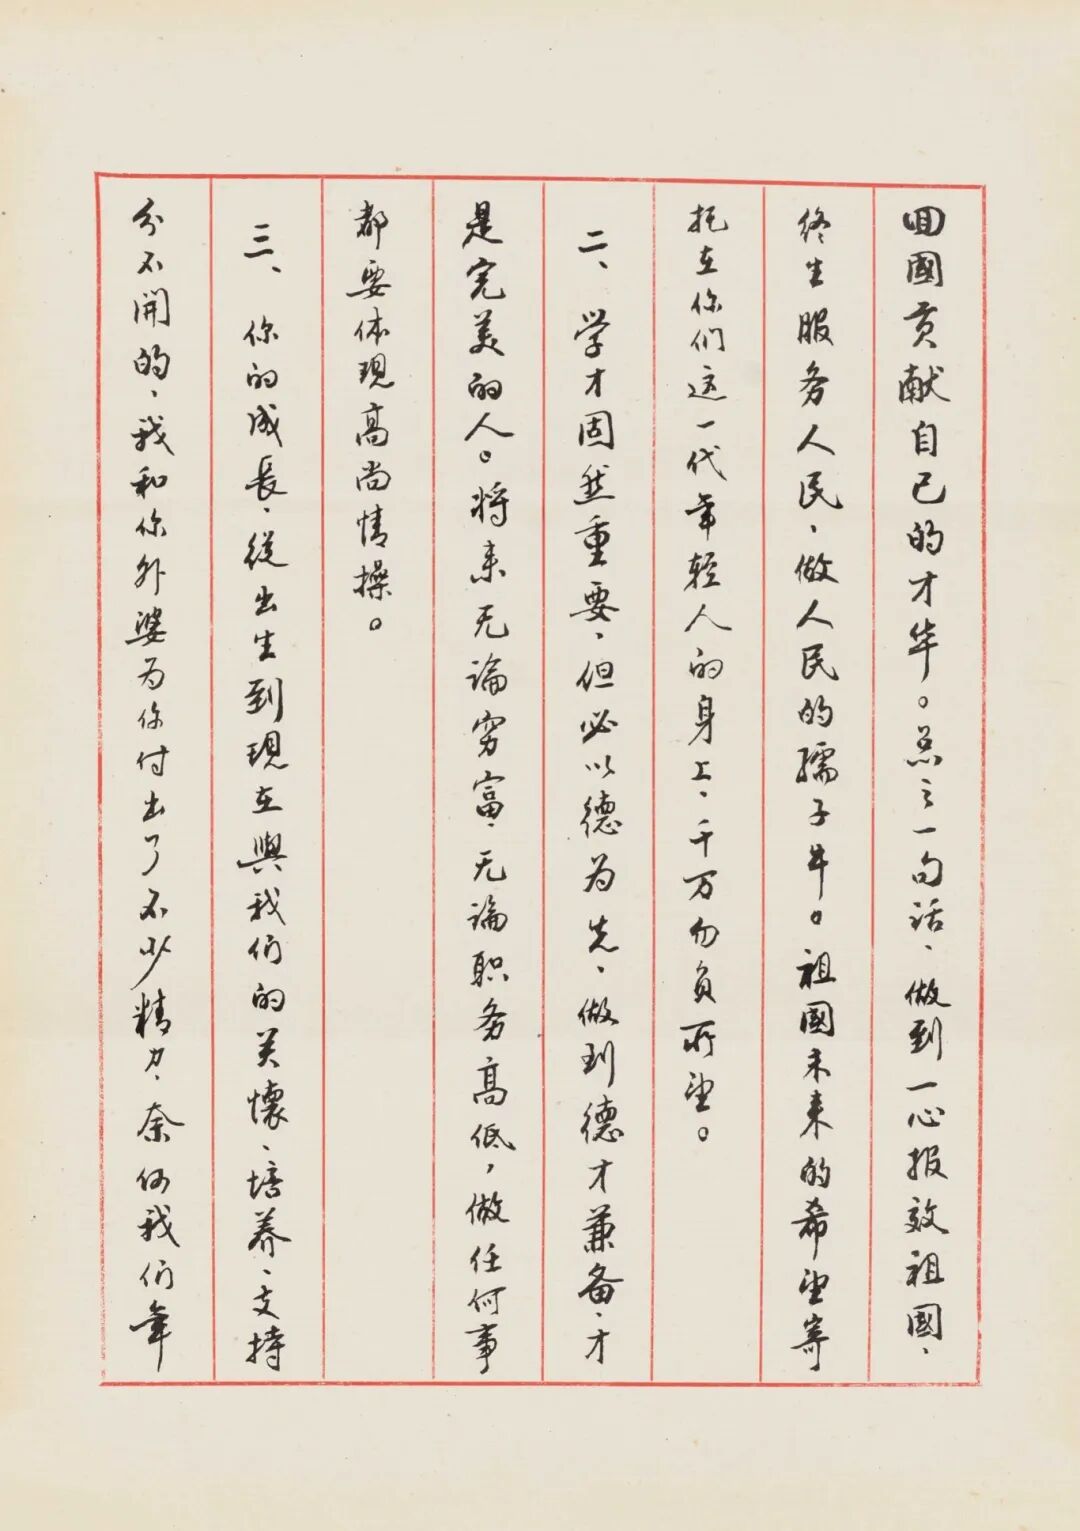 回國贡献自己的才华。总之一句话、做到一心报效祖國、
终生服务人民、做人民的孺子牛。祖國未来的希望寄
托在你们这一代年轻人的身上、千万勿负所望。
二、学才固然重要、但必以德为先、做到德才兼备、才
是完美的人。将来无论穷富、无论职务高低，做任何事
都要体现高尚情操。
三、你的成長、從出生到现在與我们的关懷、培养、支持
分不開的、我和你外婆为你付出了不少精力、奈何我们年